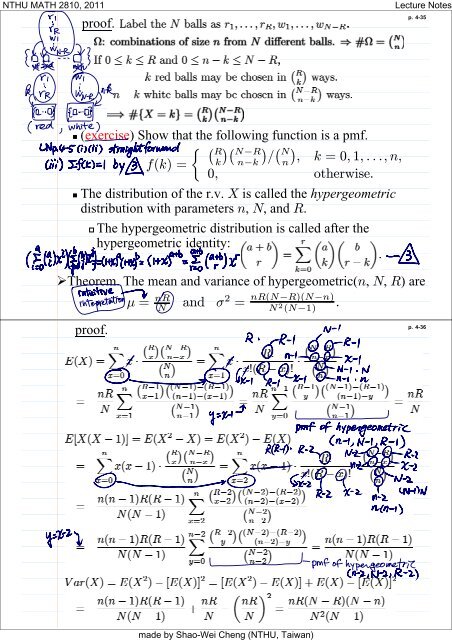 NTHU MATH 2810, 2011
Lecture Notes
p. 4-35
proof. Label the N balls as r₁, . . . , r_R, w₁, . . . , w_{N−R}.
Ω: combinations of size n from N different balls. ⇒ #Ω = \binom{N}{n}
If 0 ≤ k ≤ R and 0 ≤ n − k ≤ N − R,
k red balls may be chosen in \binom{R}{k} ways.
n − k white balls may be chosen in \binom{N−R}{n−k} ways.
⟹ #{X = k} = \binom{R}{k}\binom{N−R}{n−k}
(red, white)
(exercise) Show that the following function is a pmf.
LNp.4-5 (i)(ii) straightforward
(iii) Σf(k)=1 by △3
f(k) = { \binom{R}{k}\binom{N−R}{n−k}/\binom{N}{n}, k = 0, 1, . . . , n,
0, otherwise.
The distribution of the r.v. X is called the hypergeometric
distribution with parameters n, N, and R.
The hypergeometric distribution is called after the
hypergeometric identity:
\binom{a+b}{r} = \sum_{k=0}^{r} \binom{a}{k}\binom{b}{r−k}. — △3
=(1+x)^a(1+x)^b=(1+x)^{a+b}=\sum_{r=0}^{a+b}\binom{a+b}{r}x^r
Theorem. The mean and variance of hypergeometric(n, N, R) are
intuitive
interpretation
μ = nR/N and σ² = nR(N−R)(N−n)/N²(N−1).
p. 4-36
proof.
E(X) = \sum_{x=0}^{n} x · \binom{R}{x}\binom{N−R}{n−x}/\binom{N}{n} = \sum_{x=1}^{n}
= nR/N \sum_{x=1}^{n} \binom{R−1}{x−1}\binom{(N−1)−(R−1)}{(n−1)−(x−1)}/\binom{N−1}{n−1} = nR/N \sum_{y=0}^{n−1} \binom{R−1}{y}\binom{(N−1)−(R−1)}{(n−1)−y}/\binom{N−1}{n−1} = nR/N
y=x-1
pmf of hypergeometric
(n-1, N-1, R-1)
E[X(X − 1)] = E(X² − X) = E(X²) − E(X)
= \sum_{x=0}^{n} x(x − 1) · \binom{R}{x}\binom{N−R}{n−x}/\binom{N}{n} = \sum_{x=2}^{n} x(x − 1) ·
= n(n−1)R(R−1)/N(N−1) \sum_{x=2}^{n} \binom{R−2}{x−2}\binom{(N−2)−(R−2)}{(n−2)−(x−2)}/\binom{N−2}{n−2}
y=x-2
= n(n−1)R(R−1)/N(N−1) \sum_{y=0}^{n−2} \binom{R−2}{y}\binom{(N−2)−(R−2)}{(n−2)−y}/\binom{N−2}{n−2} = n(n−1)R(R−1)/N(N−1)
pmf of hypergeometric
(n-2, N-2, R-2)
Var(X) = E(X²) − [E(X)]² = [E(X²) − E(X)] + E(X) − [E(X)]²
= n(n−1)R(R−1)/N(N−1) + nR/N − (nR/N)² = nR(N−R)(N−n)/N²(N−1)
made by Shao-Wei Cheng (NTHU, Taiwan)